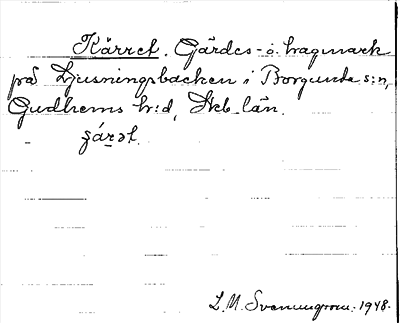 Kärret. Gärdes- o. hagmark
på Ljusningsbacken i Borgunda s:n,
Gudhems h:d, Skb. län.
L. M. Svenungsson. 1948.